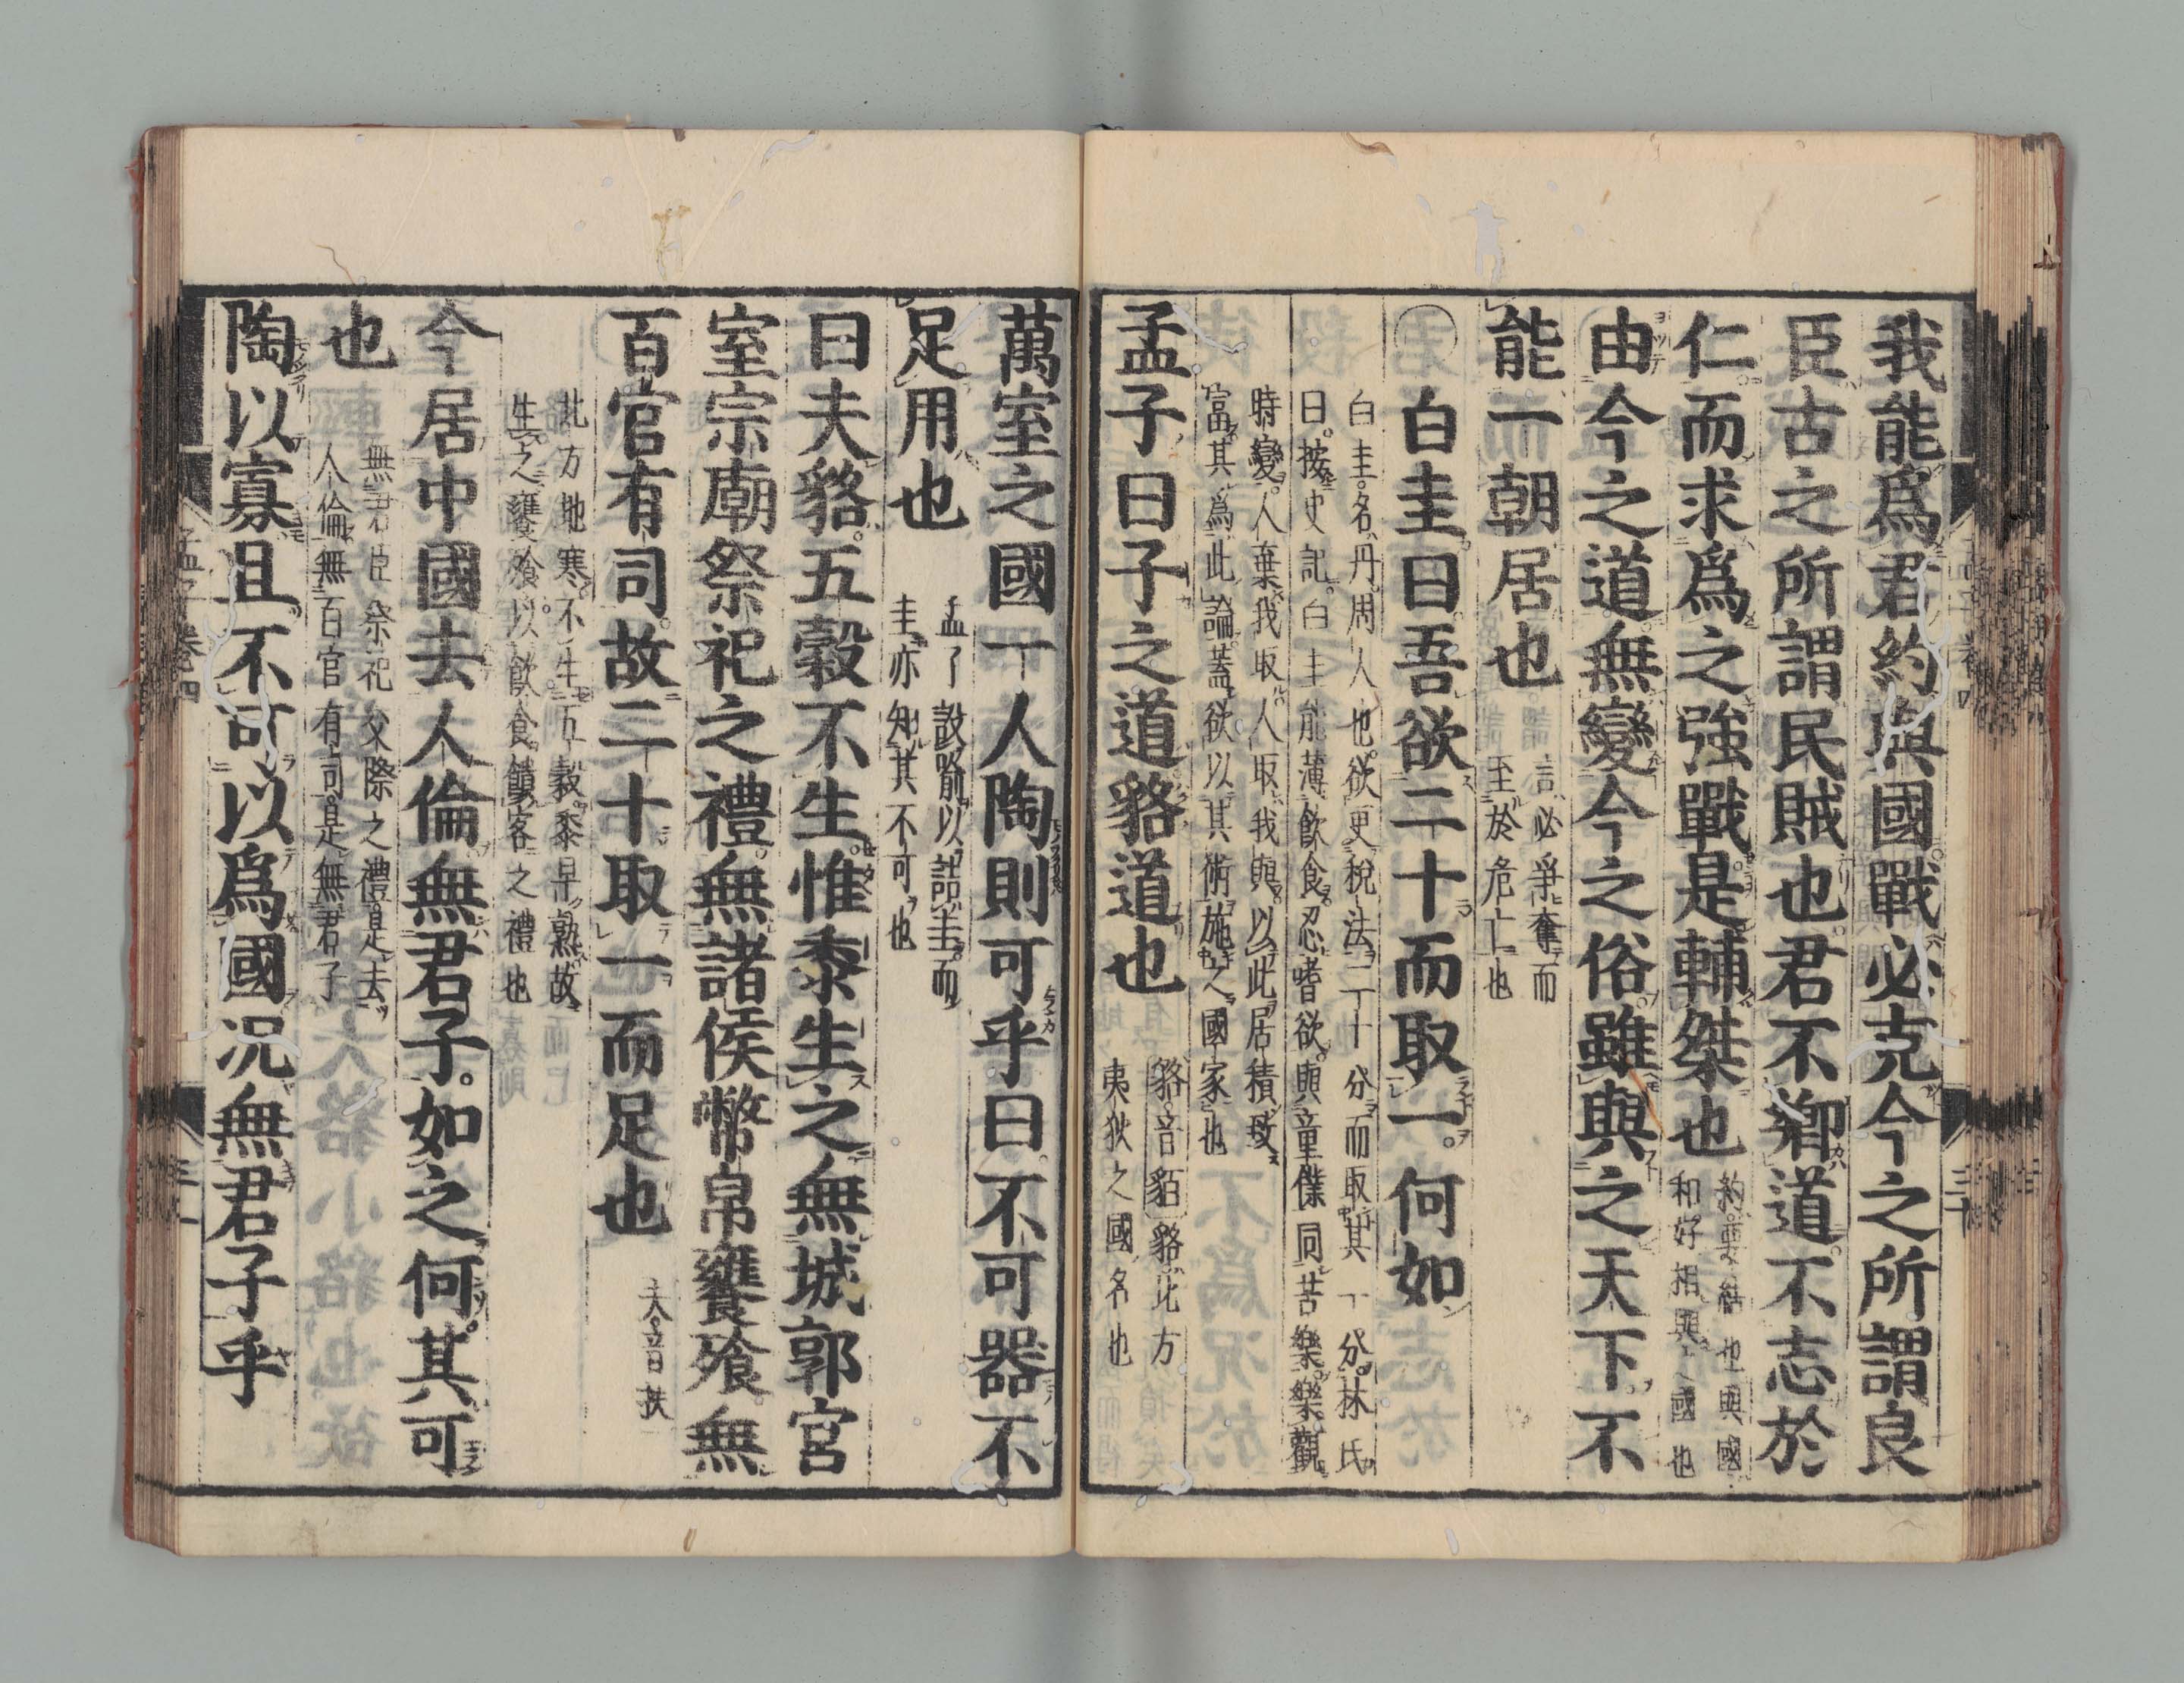 我能爲君約與國戰必克今之所謂良
臣古之所謂民賊也君不鄕道不志於
仁而求爲之強戰是輔桀也
約要結也與國
和好相與國也
由今之道無變今之俗雖與之天下不
能一朝居也
言必爭奪而
至於危亡也
白圭曰吾欲二十而取一何如
白圭名丹周人也欲更稅法二十分而取其一分林氏
曰按史記白圭能薄飮食忍嗜欲與童僕同苦樂樂觀
時變人棄我取人取我與以此居積致
富其爲此論蓋欲以其術施之國家也
孟子曰子之道貉道也
貉音貊貉北方
夷狄之國名也
萬室之國一人陶則可乎曰不可器不
足用也
孟子設喩以詰圭而
圭亦知其不可也
曰夫貉五穀不生惟黍生之無城郭宮
室宗廟祭祀之禮無諸侯幣帛饔飱無
百官有司故二十取一而足也
夫音扶
北方地寒不生五穀黍早熟故
生之饔飱以飮食饋客之禮也
今居中國去人倫無君子如之何其可
也
無君臣祭祀交際之禮是去
人倫無百官有司是無君子
陶以寡且不可以爲國况無君子乎